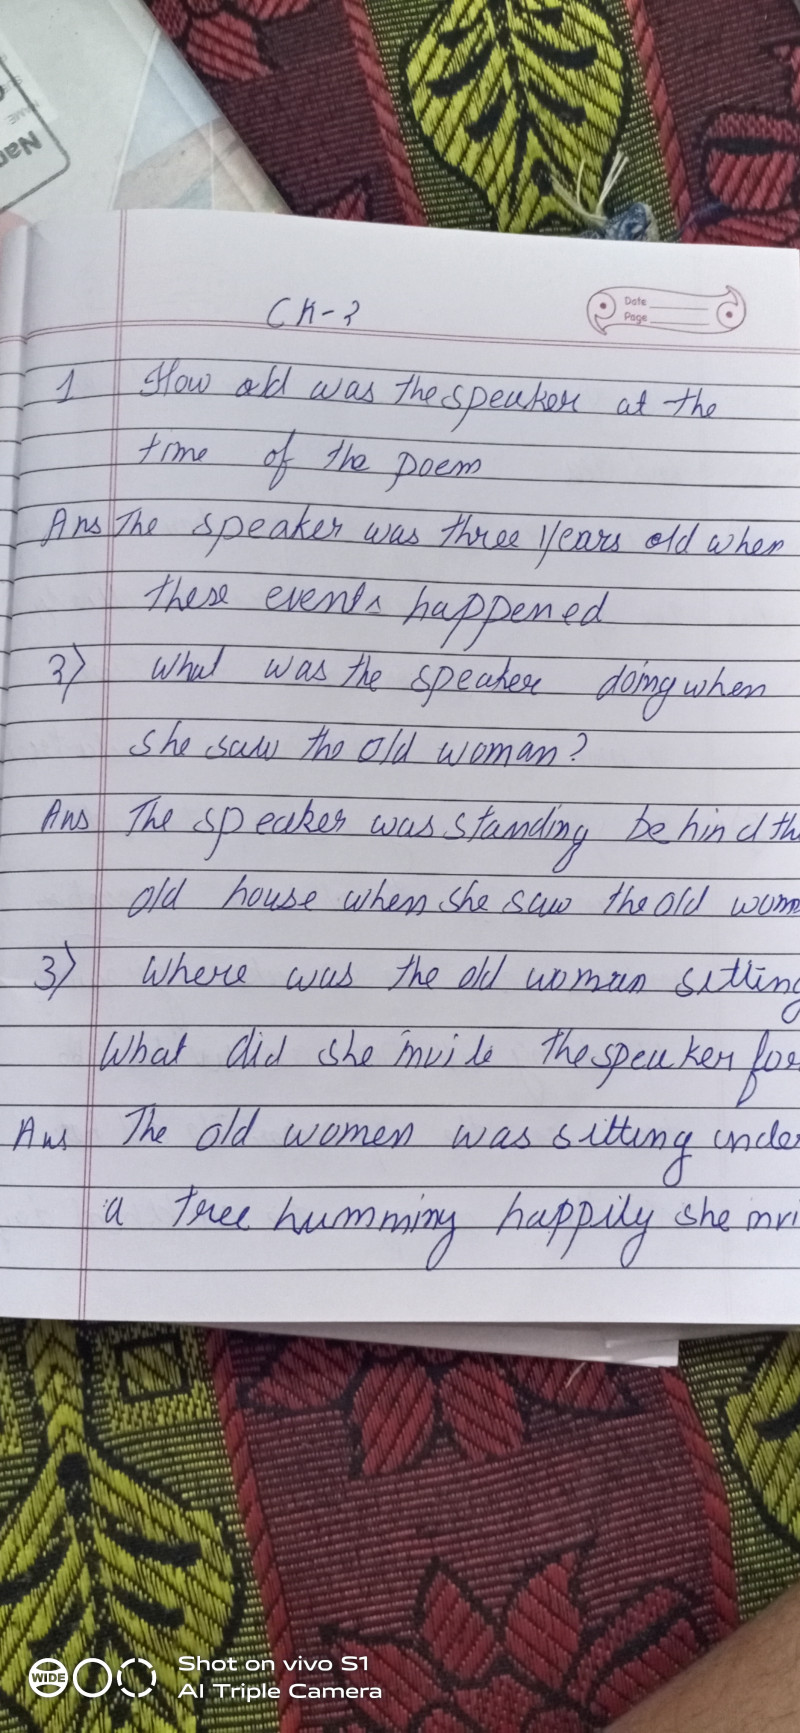 CH-3
Date
Page
1 How old was the speaker at the
time of the poem
Ans The speaker was three years old when
these events happened
2) What was the speaker doing when
she saw the old woman?
Ans The speaker was standing behind th
old house when she saw the old wom
3) Where was the old woman sitting
What did she invite the speaker for
Ans The old women was sitting unde
a tree humming happily she invi
WIDE
Shot on vivo S1
AI Triple Camera